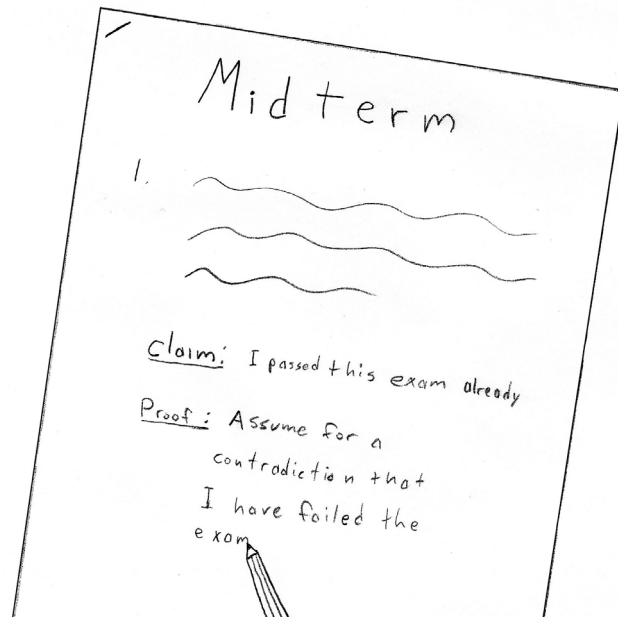 Midterm
1.
Claim: I passed this exam already
Proof: Assume for a
contradiction that
I have failed the
exam